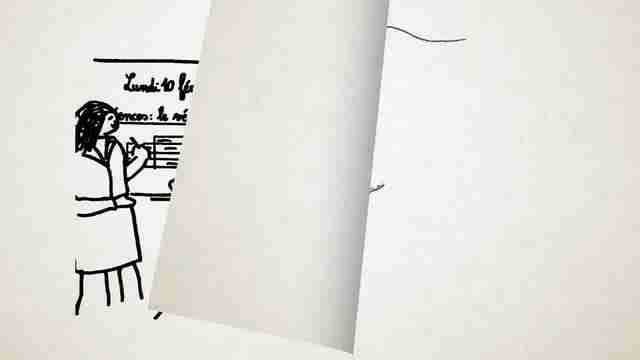 Lundi 10 fé
ences: le vé